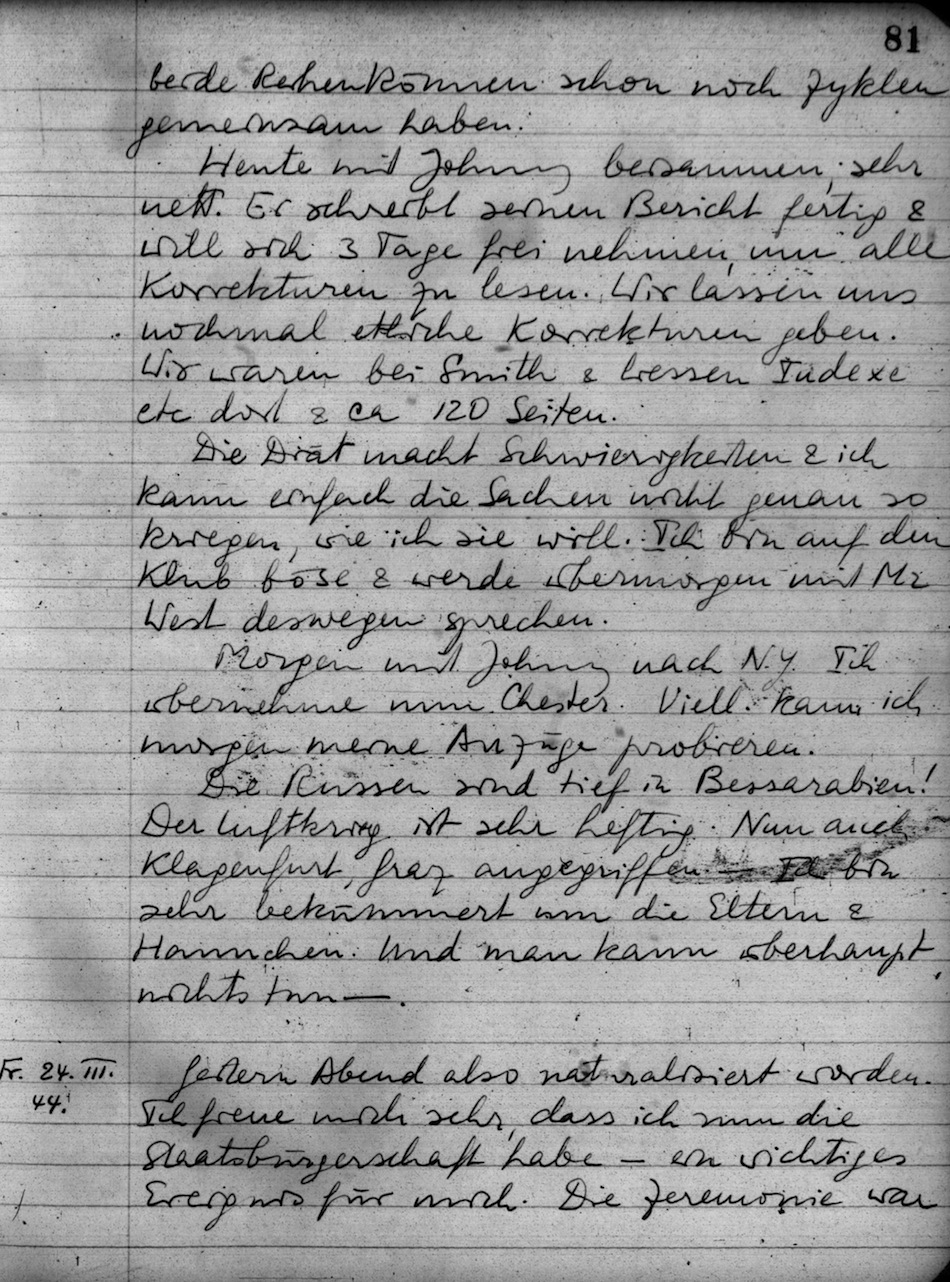 81
beide Reihen können schon noch Zyklen
gemeinsam haben.
Heute mit Johnny beisammen, sehr
nett. Er schreibt seinen Bericht fertig &
will sich 3 Tage frei nehmen, um alle
Korrekturen zu lesen. Wir lassen uns
nochmal etliche Korrekturen geben.
Wir waren bei Smith & liessen Indexe
etc dort & ca 120 Seiten.
Die Diät macht Schwierigkeiten & ich
kann einfach die Sachen nicht genau so
kriegen, wie ich sie will. Ich bin auf den
Klub böse & werde übermorgen mit Mr
West deswegen sprechen.
Morgen mit Johnny nach N.Y. Ich
übernehme nun Chester. Viell. kann ich
morgen meine Anzüge probieren.
Die Russen sind tief in Bessarabien!
Der Luftkrieg ist sehr heftig. Nun auch
Klagenfurt, Graz angegriffen — Ich bin
sehr bekümmert um die Eltern &
Hannchen. Und man kann überhaupt
nichts tun —.
Fr. 24. III.
44.
Gestern Abend also naturalisiert worden.
Ich freue mich sehr, dass ich nun die
Staatsbürgerschaft habe – ein wichtiges
Ereignis für mich. Die Zeremonie war